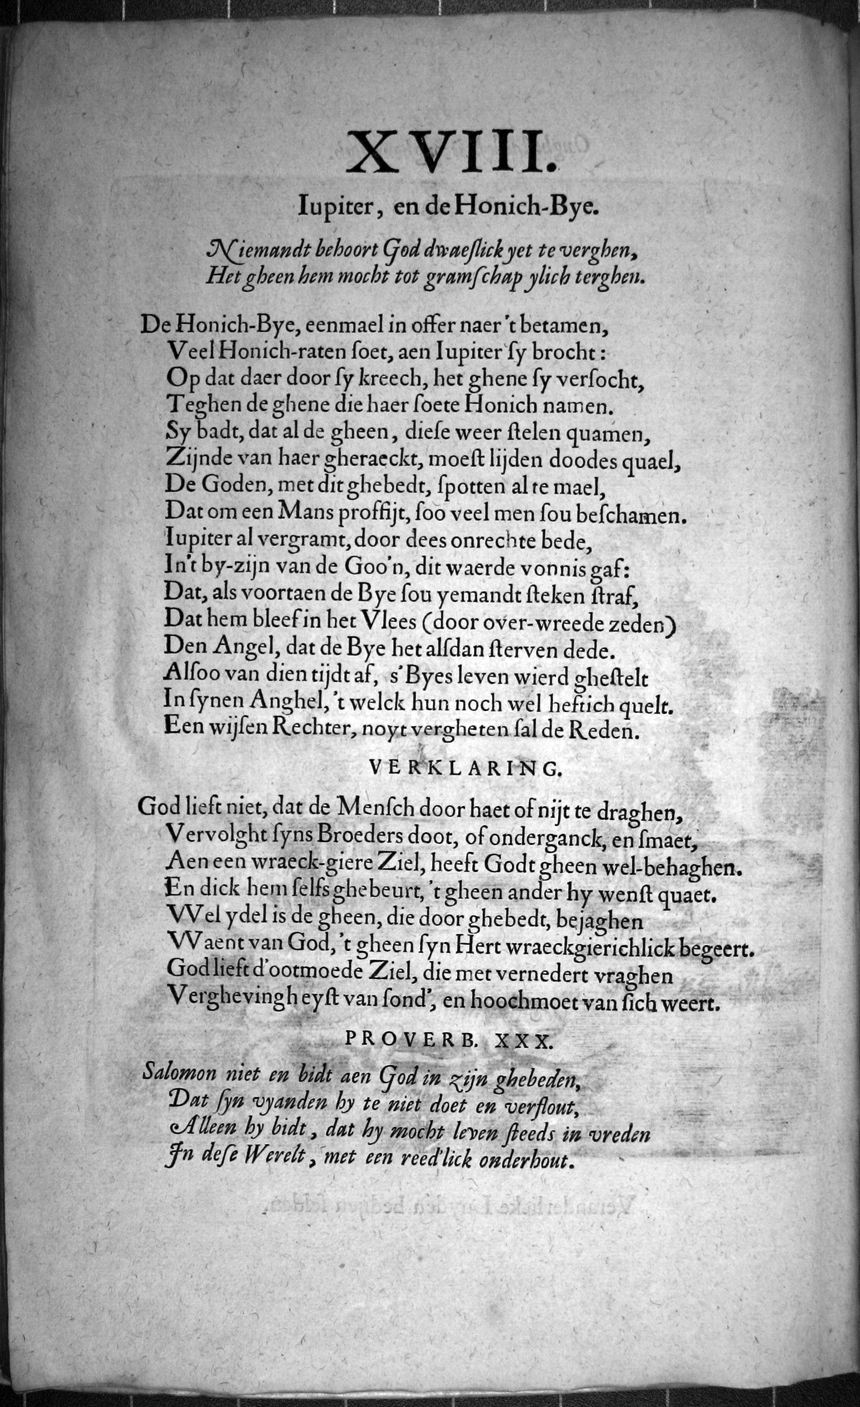 XVIII.
Iupiter, en de Honich-Bye.
Niemandt behoort God dwaeſlick yet te verghen,
Het gheen hem mocht tot gramſchap ylich terghen.
De Honich-Bye, eenmael in offer naer 't betamen,
Veel Honich-raten ſoet, aen Iupiter ſy brocht:
Op dat daer door ſy kreech, het ghene ſy verſocht,
Teghen de ghene die haer ſoete Honich namen.
Sy badt, dat al de gheen, dieſe weer ſtelen quamen,
Zijnde van haer gheraeckt, moeſt lijden doodes quael,
De Goden, met dit ghebedt, ſpotten al te mael,
Dat om een Mans proffijt, ſoo veel men ſou beſchamen.
Iupiter al vergramt, door dees onrechte bede,
In't by-zijn van de Goo'n, dit waerde vonnis gaf:
Dat, als voortaen de Bye ſou yemandt ſteken ſtraf,
Dat hem bleef in het Vlees (door over-wreede zeden)
Den Angel, dat de Bye het alſdan ſterven dede.
Alſoo van dien tijdt af, s'Byes leven wierd gheſtelt
In ſynen Anghel, 't welck hun noch wel heftich quelt.
Een wijſen Rechter, noyt vergheten ſal de Reden.
VERKLARING.
God lieft niet, dat de Menſch door haet of nijt te draghen,
Vervolght ſyns Broeders doot, of onderganck, en ſmaet,
Aen een wraeck-giere Ziel, heeft Godt gheen wel-behaghen.
En dick hem ſelfs ghebeurt, 't gheen ander hy wenſt quaet.
Wel ydel is de gheen, die door ghebedt, bejaghen
Waent van God, 't gheen ſyn Hert wraeckgierichlick begeert.
God lieft d'ootmoede Ziel, die met vernedert vraghen
Verghevingh eyſt van ſond', en hoochmoet van ſich weert.
PROVERB. XXX.
Salomon niet en bidt aen God in zijn ghebeden,
Dat ſyn vyanden hy te niet doet en verſlout,
Alleen hy bidt, dat hy mocht leven ſteeds in vreden
In deſe Werelt, met een reed'lick onderhout.